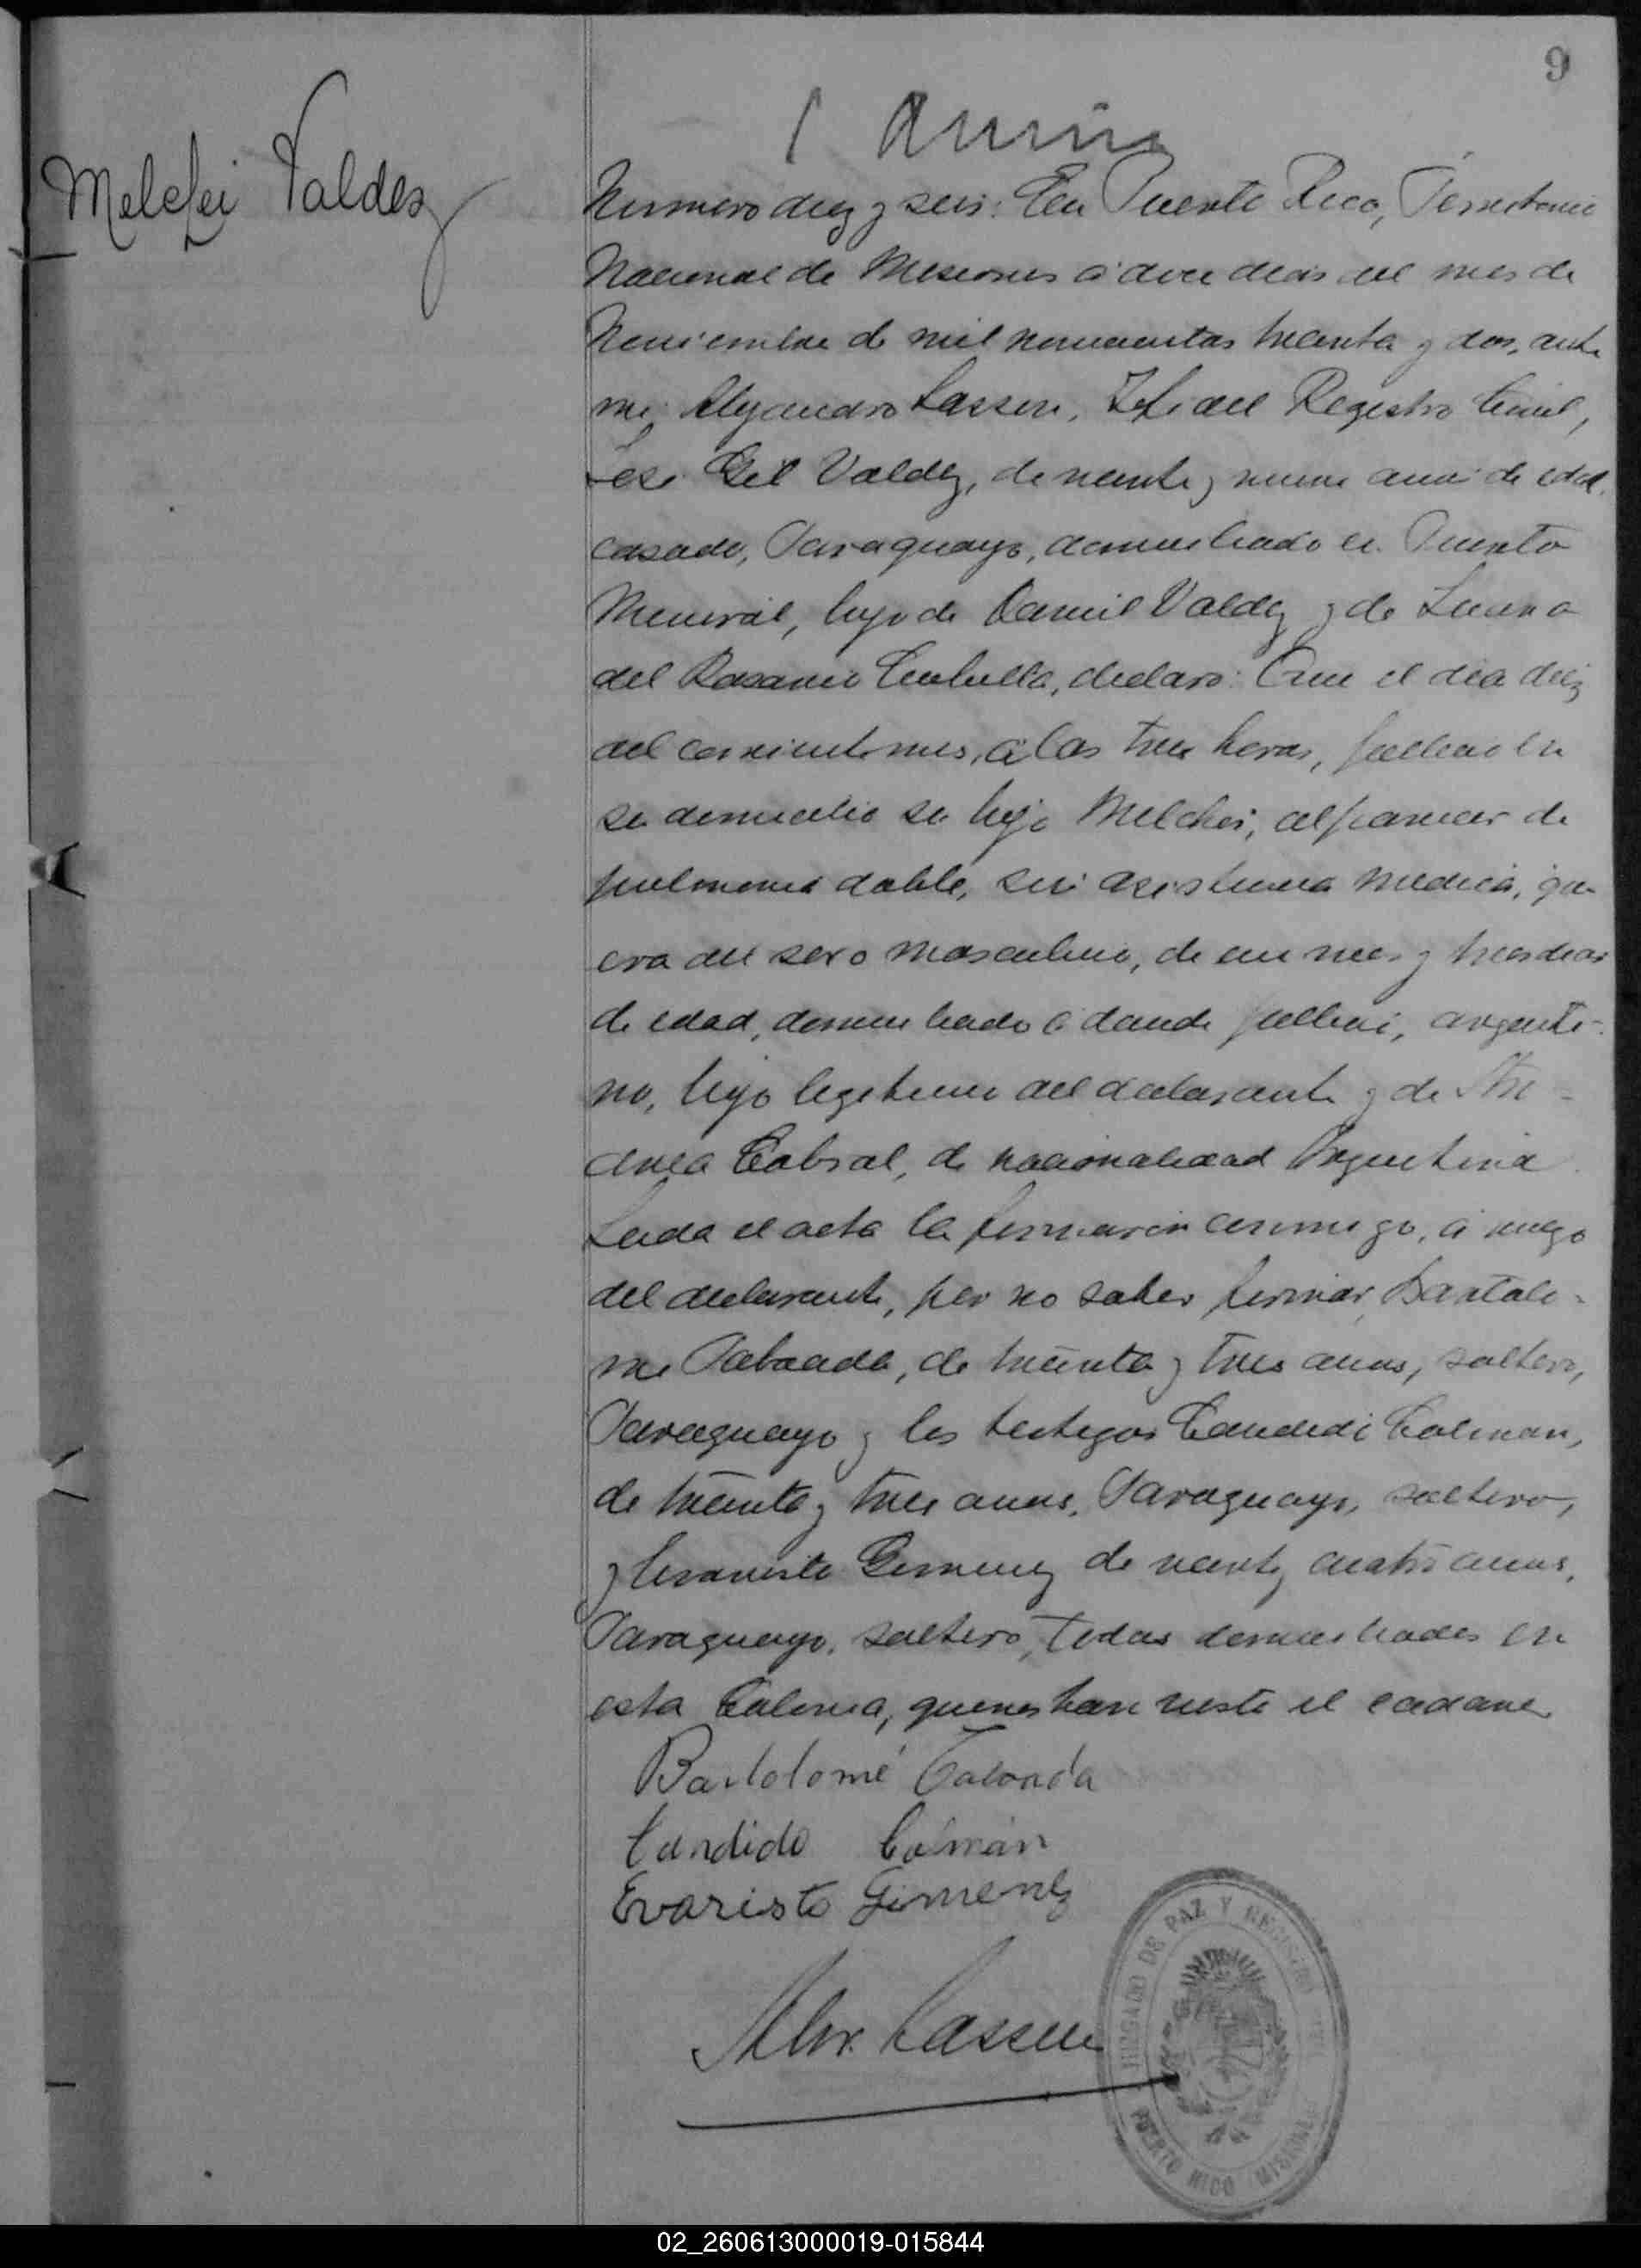 9
Melchei Valdez
Numero diez y seis: En Puerto Rico, Territorio
Nacional de Misiones á doce dias del mes de
Noviembre de mil novecientos treinta y dos, ante
mi, Alejandro Lassen, Jefe del Registro Civil,
José Gil Valdez, de veinte y nueve años de edad,
casado, Paraguayo, domiciliado en Puerto
Mineral, hijo de Daniel Valdez y de Juana
del Rosario, declaro: Que el dia diez
del corriente mes, á las tres horas, fallecio en
su domicilio su hijo Melchei, al parecer de
pulmonia doble, sin asistencia medica, que
era del sexo masculino, de un mes y tres dias
de edad, domiciliado á donde fallecio, argenti-
no, hijo legitimo del declarante y de
Cabral, de nacionalidad Argentina
Leida el acta la firmaron conmigo, á ruego
del declarante, por no saber firmar, Bartolo-
me Taboada, de treinta y tres años, soltero,
Paraguayo y los testigos Candido Colman,
de treinta y tres años, Paraguayo, soltero,
y Evaristo Gimenez de veinte y cuatro años,
Paraguayo, soltero, todos domiciliados en
esta Colonia, quienes han visto el cadaver
Bartolomé Taboada
Candido Colmán
Evaristo Gimenez
Alex. Lassen
JUZGADO DE PAZ Y REGISTRO CIVIL
PUERTO RICO MISIONES
02_260613000019-015844